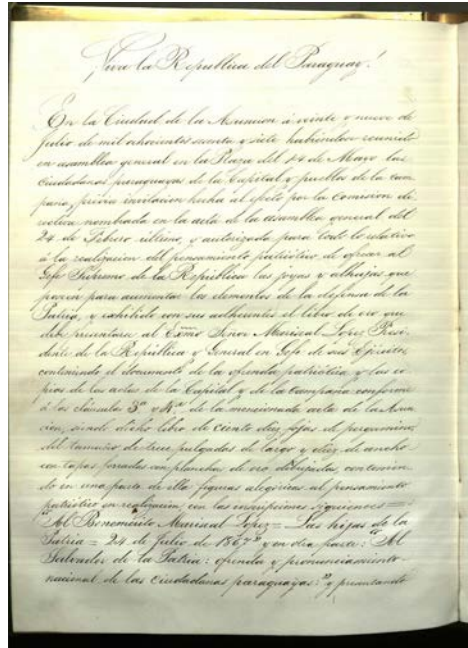 Viva la Republica del Paraguay!
En la Ciudad de la Asuncion á veinte y nueve de
Julio de mil ochocientos sesenta y siete habiendose reunido
en asamblea general en la Plaza del 14 de Mayo las
Ciudadanas paraguayas de la Capital y pueblos de la cam-
paña, previa invitacion hecha al efecto por la Comision di-
rectiva nombrada en la acta de la asamblea general del
24 de Febrero ultimo, y autorizada para todo lo relativo
á la realizacion del pensamiento patriotico de ofrecer al
Gefe Supremo de la Republica las joyas y alhajas que
poseen para aumentar los elementos de la defensa de la
Patria, y exhibido con sus adherentes el libro de oro que
debe presentarse al Exmo Señor Mariscal Lopez Presi-
dente de la Republica y General en Gefe de sus Ejércitos,
conteniendo el documento de la ofrenda patriótica y las co-
pias de las actas de la Capital y de la Campaña conforme
á las cláusulas 3ª y 4ª de la mencionada acta de la Asun-
cion, siendo dicho libro de ciento diez fojas de pergamino,
del tamaño de trece pulgadas de largo y diez de ancho
con tapas forradas con planchas de oro dibujadas, contenien-
do en una parte de ella: figuras alegóricas al pensamiento
patriótico en realizacion, con las inscripciones siguientes =:
"Al Benemérito Mariscal Lopez = Las hijas de la
Patria = 24 de Julio de 1867" y en otra parte: "Al
Salvador de la Patria: ofrenda y pronunciamiento
nacional de las Ciudadanas paraguayas:" y presentando